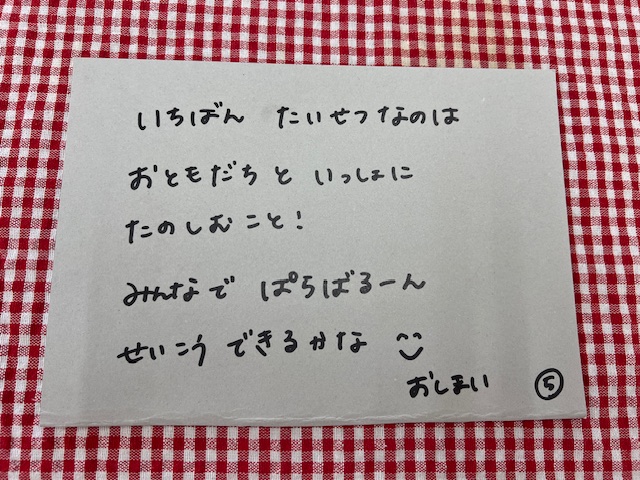 いちばん たいせつなのは
おともだちと いっしょに
たのしむこと!
みんなで ぱらばるーん
せいこう できるかな
おしまい
⑤